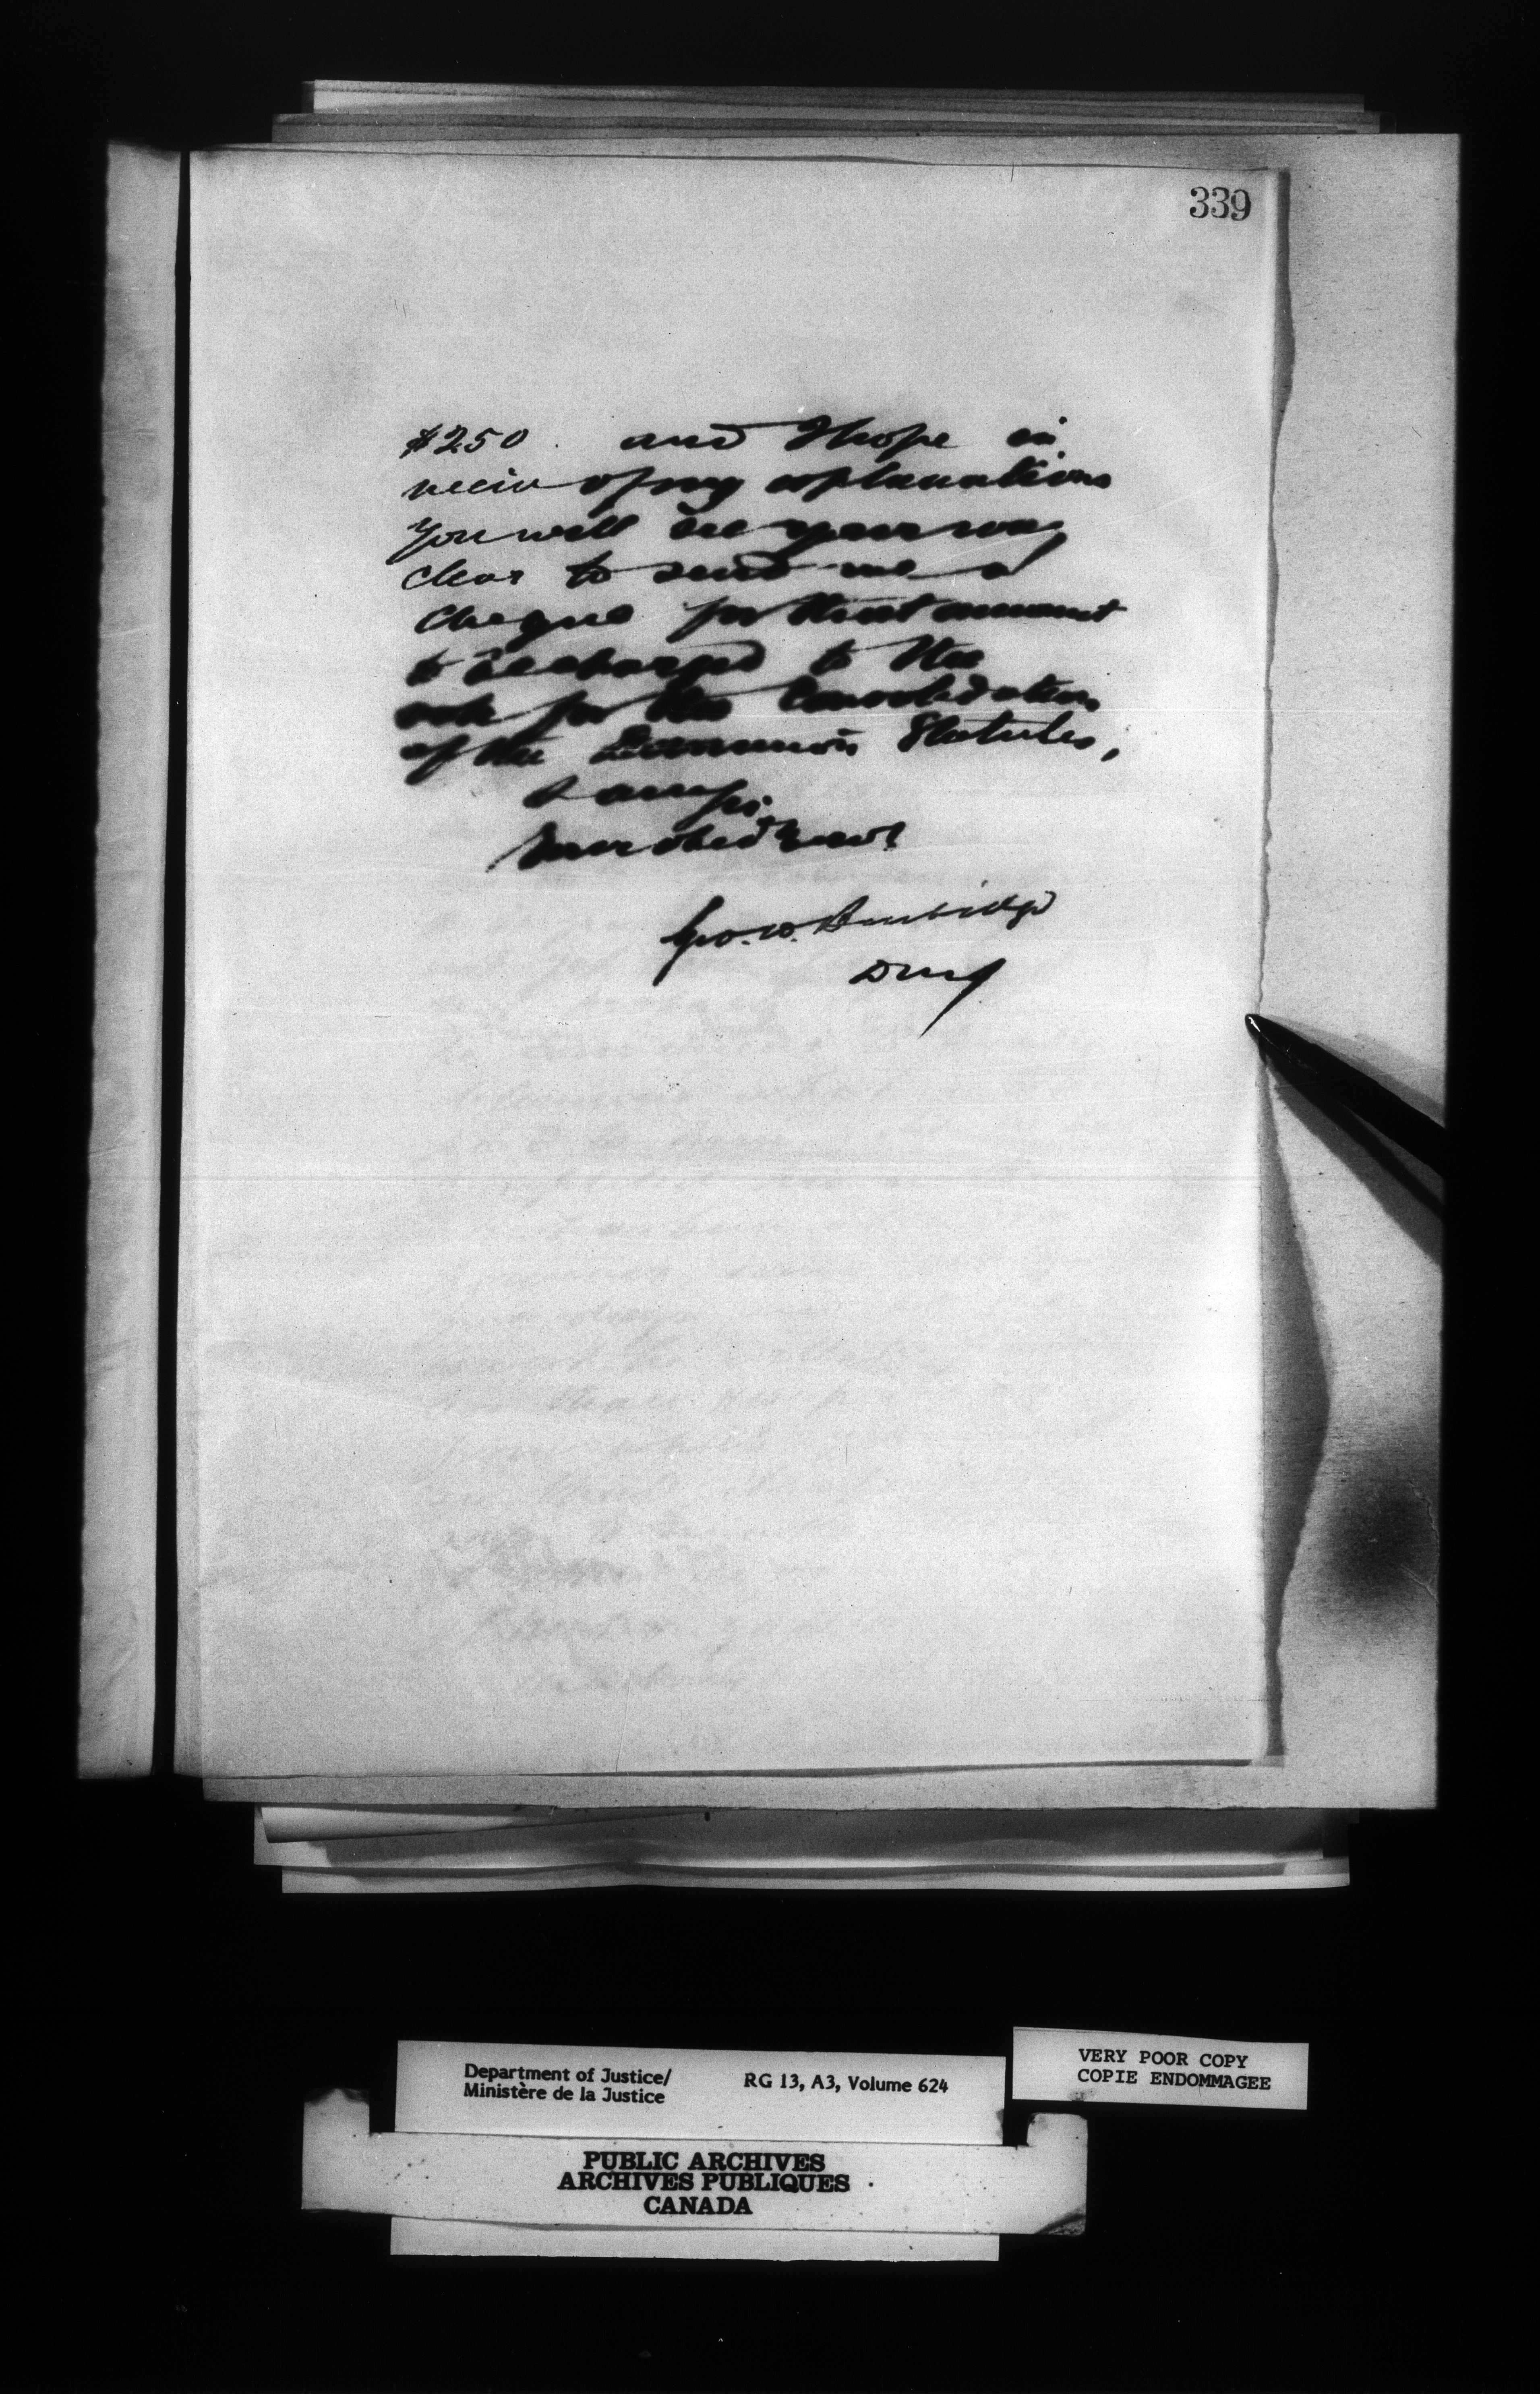 339
$250. and I hope in
view of my explanations
you will see your way
clear to send me a
cheque for that amount
to be charged to the
vote for the Consolidation
of the Dominion Statutes,
I am Sir
Your obed Servt
Geo. W. Burbidge
DMJ
Department of Justice/
Ministère de la Justice
RG 13, A3, Volume 624
VERY POOR COPY
COPIE ENDOMMAGEE
PUBLIC ARCHIVES
ARCHIVES PUBLIQUES
CANADA